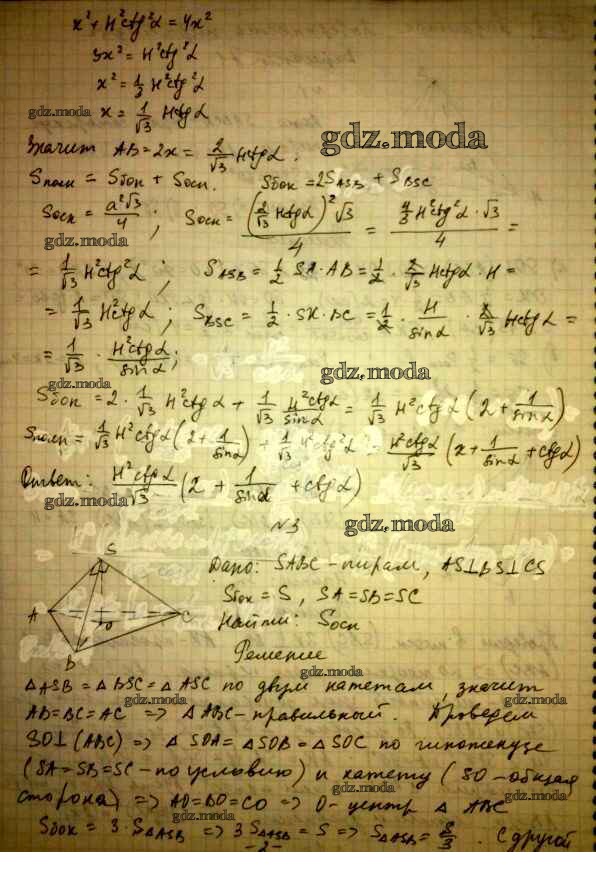 x² + H²ctg²α = 4x²
3x² = H²ctg²α
x² = 1/3 H²ctg²α
gdz.moda
x = 1/√3 Hctgα
gdz.moda
Значит AB = 2x = 2/√3 Hctgα.
Sполн = Sбок + Sосн. Sбок = 2S_ASB + S_BSC
Sосн = a²√3/4; Sосн = (2/√3 Hctgα)²√3/4 = 4/3 H²ctg²α·√3/4 =
gdz.moda
= 1/√3 H²ctg²α; S_ASB = 1/2 SA·AB = 1/2 · 2/√3 Hctgα · H =
= 1/√3 H²ctgα; S_BSC = 1/2 · SK · BC = 1/2 · H/sinα · 2/√3 Hctgα =
= 1/√3 · H²ctgα/sinα;
gdz.moda
gdz.moda
Sбок = 2 · 1/√3 H²ctgα + 1/√3 H²ctgα/sinα = 1/√3 H²ctgα (2 + 1/sinα)
Sполн = 1/√3 H²ctgα (2 + 1/sinα) + 1/√3 H²ctg²α = H²ctgα/√3 (2 + 1/sinα + ctgα)
Ответ: H²ctgα/√3 (2 + 1/sinα + ctgα)
gdz.moda
gdz.moda
№3
S
A
B
C
O
Дано: SABC – пирам, AS⊥BS⊥CS
Sбок = S, SA = SB = SC
gdz.moda
Найти: Sосн
Решение
gdz.moda
△ASB = △BSC = △ASC по двум катетам, значит
gdz.moda
gdz.moda
AB = BC = AC => △ABC – правильный. Проведем
SO⊥(ABC) => △SOA = △SOB = △SOC по гипотенузе
gdz.moda
(SA = SB = SC – по условию) и катету (SO – общая
gdz.moda
gdz.moda
сторона) => AO = BO = CO => O – центр △ABC
gdz.moda
Sбок = 3·S△ASB => 3S△ASB = S => S△ASB = S/3. С другой
-2-